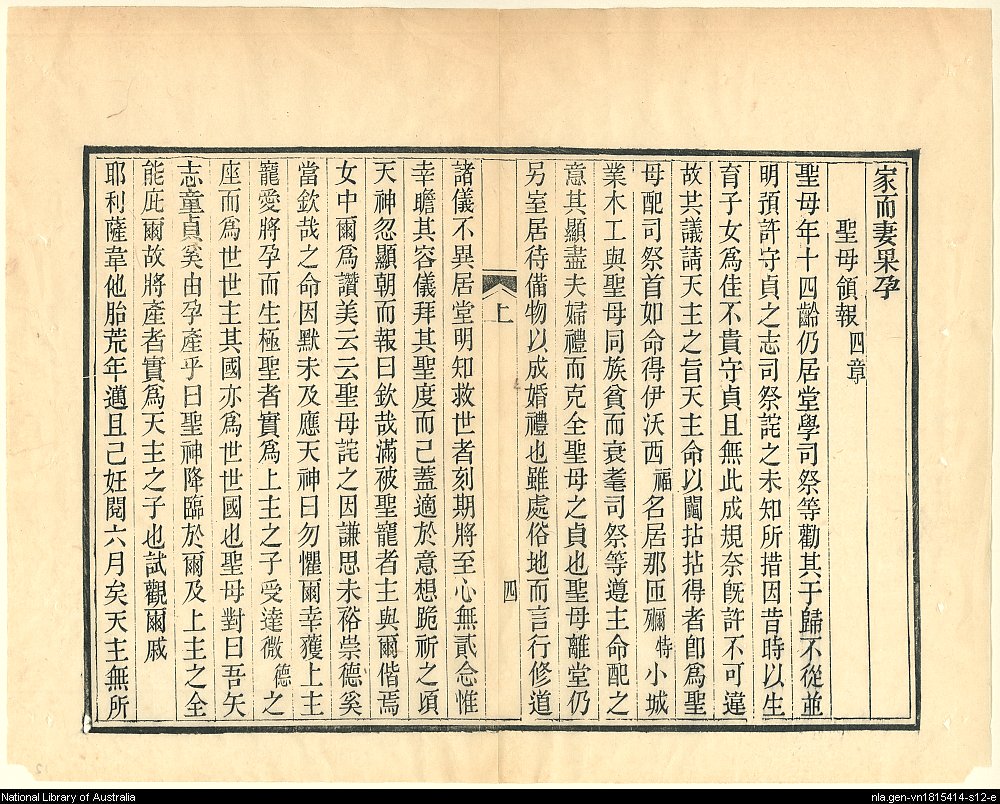 家而妻果孕
聖母領報 四章
聖母年十四齡仍居堂學司祭等勸其于歸不從並
明預許守貞之志司祭詫之未知所措因昔時以生
育子女爲佳不貴守貞且無此成規奈旣許不可違
故共議請天主之旨天主命以鬮拈拈得者卽爲聖
母配司祭首如命得伊沃西福名居那匝彌特小城
業木工與聖母同族貧而衰耄司祭等遵主命配之
意其顯盡夫婦禮而克全聖母之貞也聖母離堂仍
另室居待備物以成婚禮也雖處俗地而言行修道
上
四
諸儀不異居堂明知救世者刻期將至心無貳念惟
幸瞻其容儀拜其聖度而已蓋適於意想跪祈之頃
天神忽顯朝而報曰欽哉滿被聖寵者主與爾偕焉
女中爾爲讚美云云聖母詫之因謙思未裕祟德奚
當欽哉之命因默未及應天神曰勿懼爾幸獲上主
寵愛將孕而生極聖者實爲上主之子受達微德之
座而爲世世主其國亦爲世世國也聖母對曰吾矢
志童貞奚由孕產乎曰聖神降臨於爾及上主之全
能庇爾故將產者實爲天主之子也試觀爾戚
耶利薩韋他胎荒年邁且己妊閱六月矣天主無所
National Library of Australia
nla.gen-vn1815414-s12-e